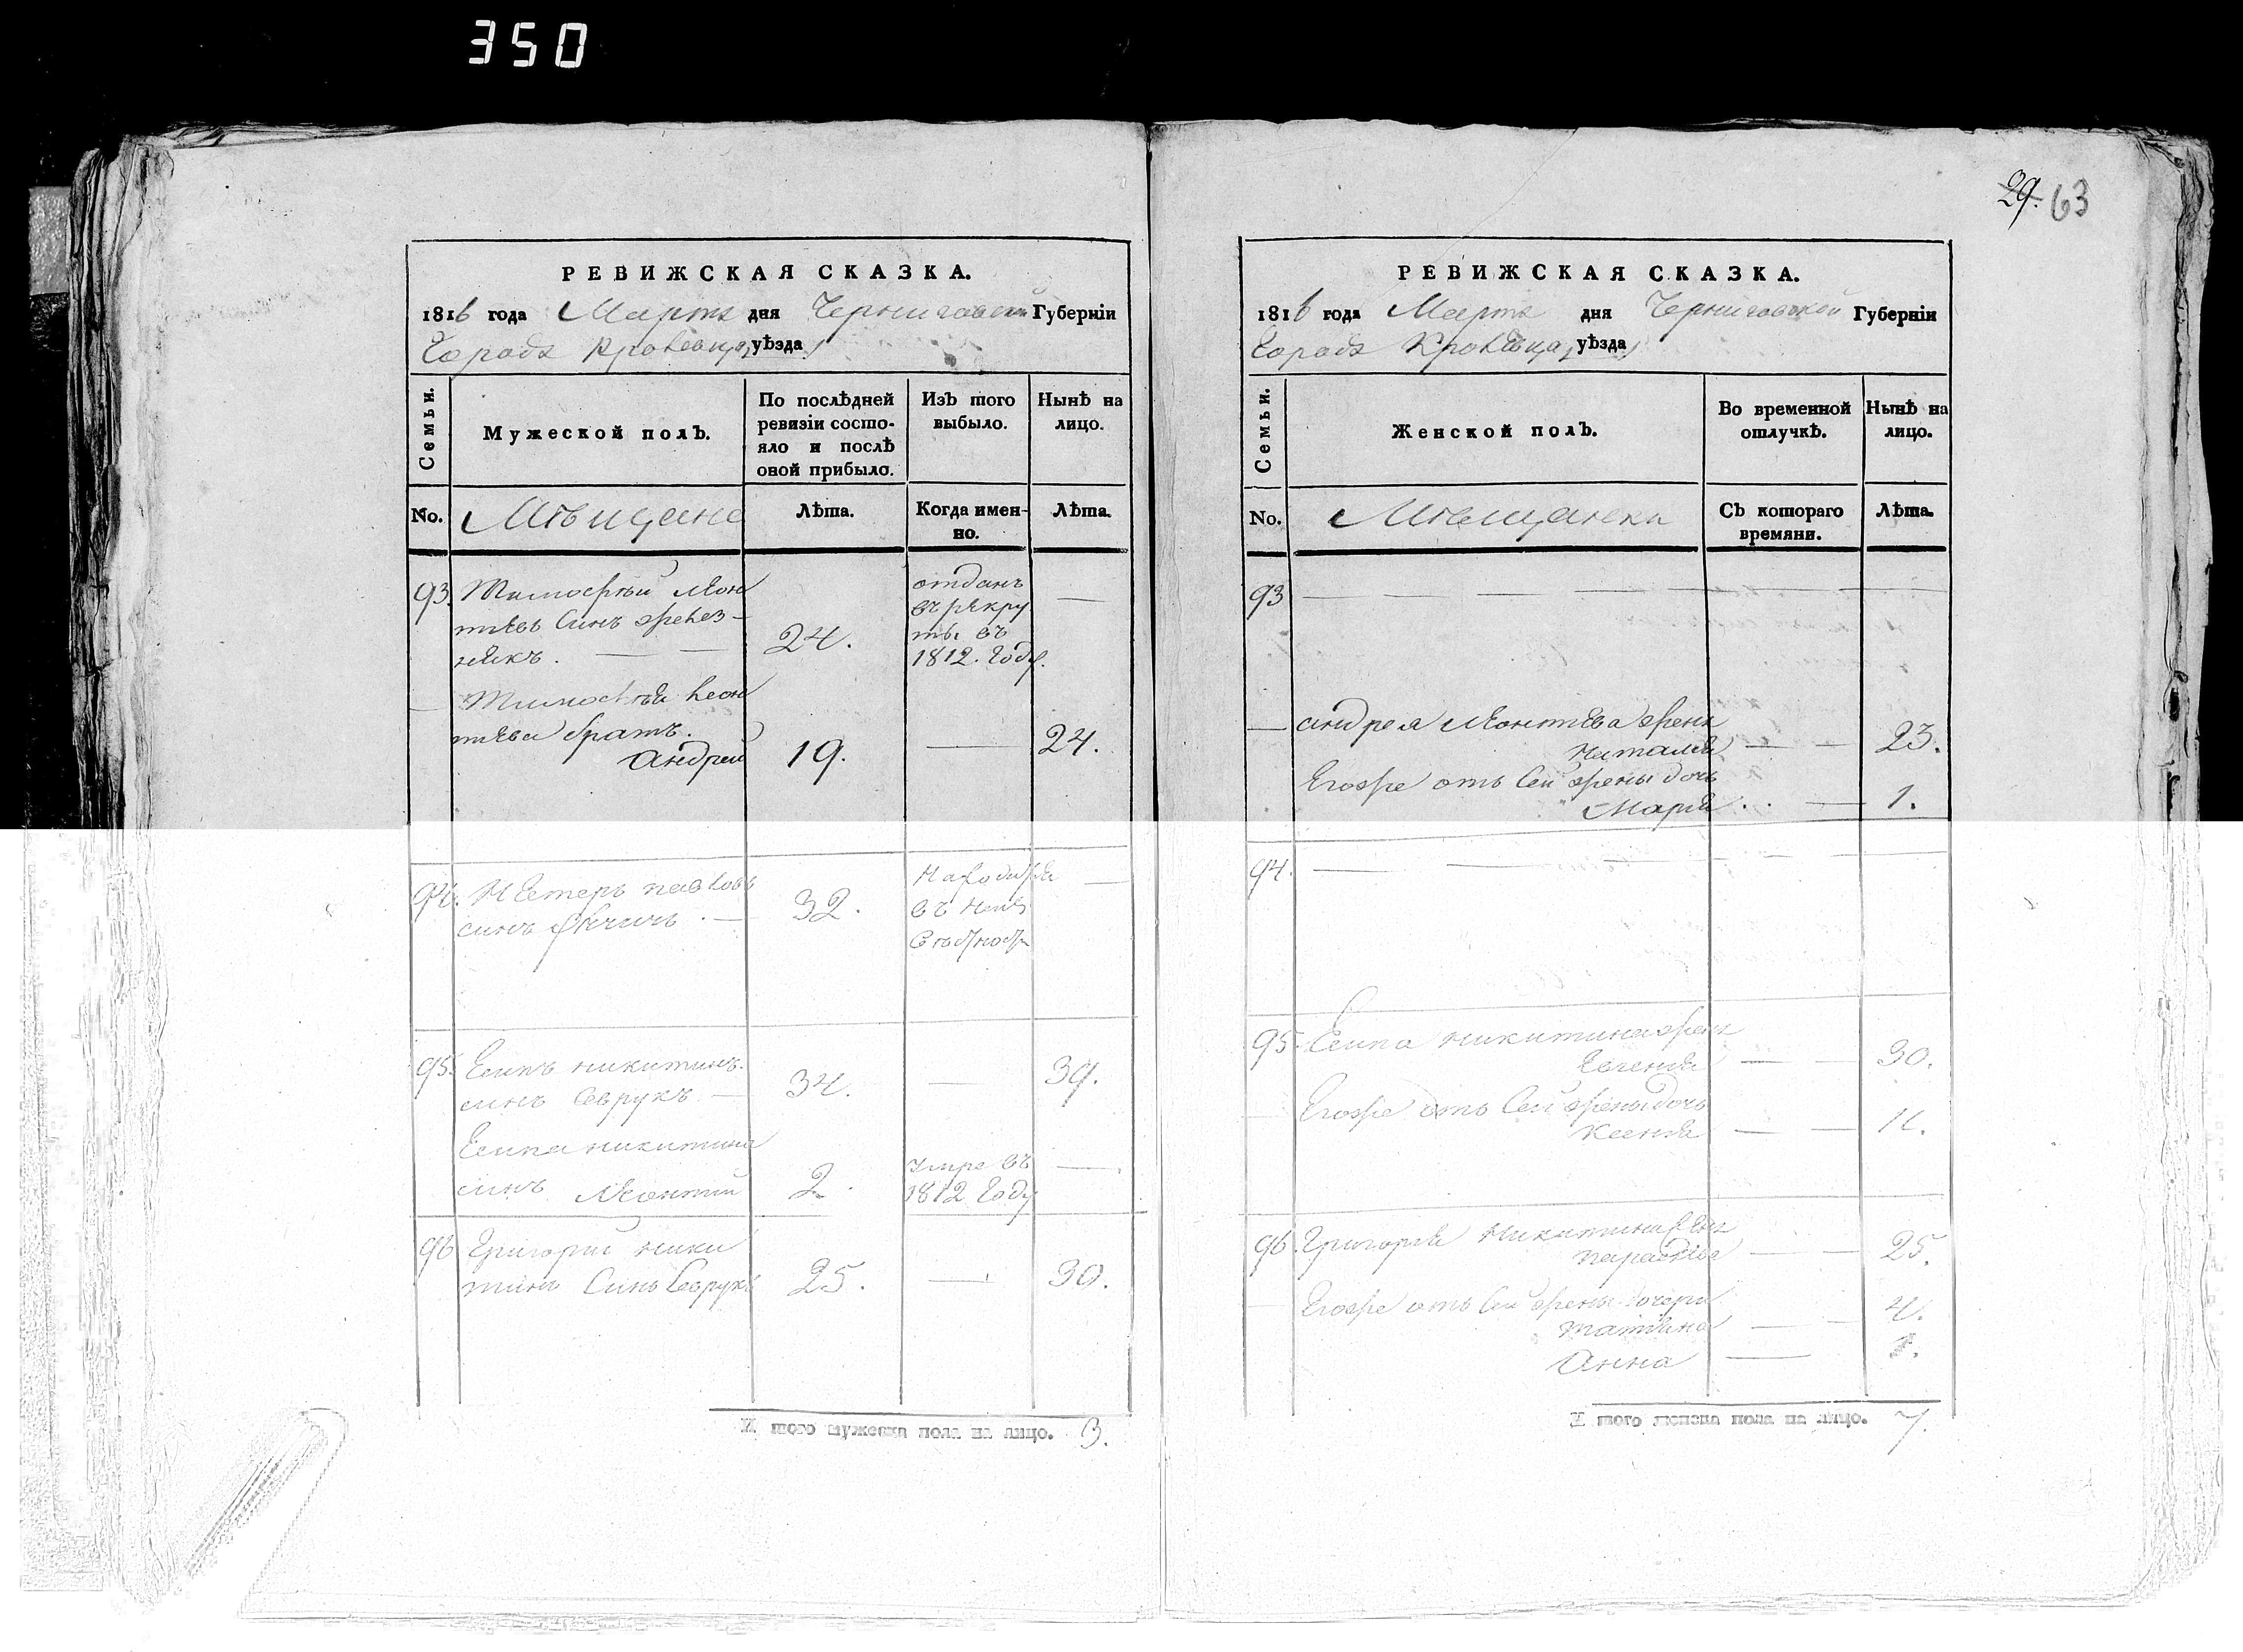 350
29. 63
РЕВИЖСКАЯ СКАЗКА.
1816 года Марта дня Черниговской Губерніи
Города Кролевца, уѣзда
Семьи.
Мужеской полъ.
По послѣдней
ревизіи состо-
яло и послѣ
оной прибыло.
Изъ того
выбыло.
Нынѣ на
лицо.
No.
Мѣщане
Лѣта.
Когда имен-
но.
Лѣта.
93. Тимофѣй Леон
тіевъ Синъ
24.
отданъ
въ рекру
ты въ
1812. Году.
Тимофѣя Леон
тіева братъ.
Андрей 19. 24.
94. Петеръ Павловъ
синъ
32.
въ
95. Есипъ никитинъ
синъ Севрукъ. 34. 39.
Есипа никитина
синъ Леонтій 2.
умре въ
1812 Году
96 Григорій ники
тинъ Синъ Севрукъ 25. 30.
И того мужеска пола на лицо. 3.
РЕВИЖСКАЯ СКАЗКА.
1816 года Марта дня Черниговской Губерніи
Города Кролевца, уѣзда
Семьи.
Женской полъ.
Во временной
отлучкѣ.
Нынѣ на
лицо.
No.
Мѣщанки
Съ котораго
времяни.
Лѣта.
93
андрея Леонтіева жена
Наталія 23.
Егоже отъ Сей жены дочь
Марія 1.
94.
95. Есипа никитина жена
Евгенія 30.
Егоже отъ Сей жены дочь
Ксенія 11.
96. Григорія Никитина жена
Параскія 25.
Егоже отъ Сей жены дочери
татіяна 4.
Анна 1.
И того женска пола на лицо. 7.